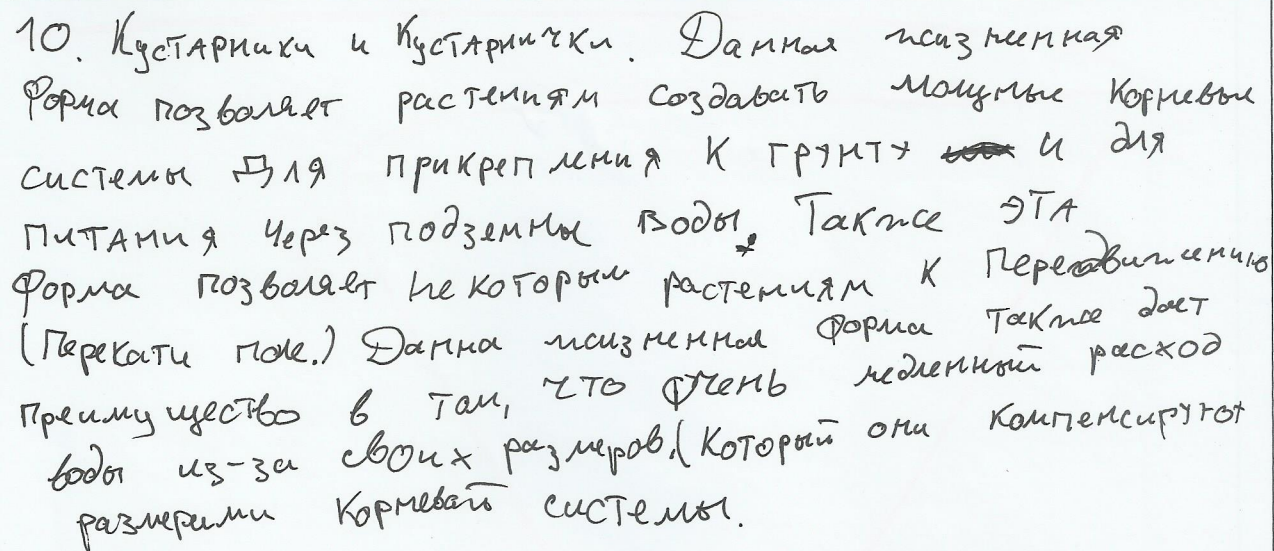 10. Кустарники и Кустарнички. Данная жизненная
форма позволяет растениям создавать мощные корневые
системы для прикрепления к грунту и для
питания через подземные воды. Также эта
форма позволяет некоторым растениям к передвижению
(Перекати поле.) Данна жизненная форма также дает
преимущество в том, что очень медленный расход
воды из-за своих размеров. (Который они компенсируют
размерами корневой системы.